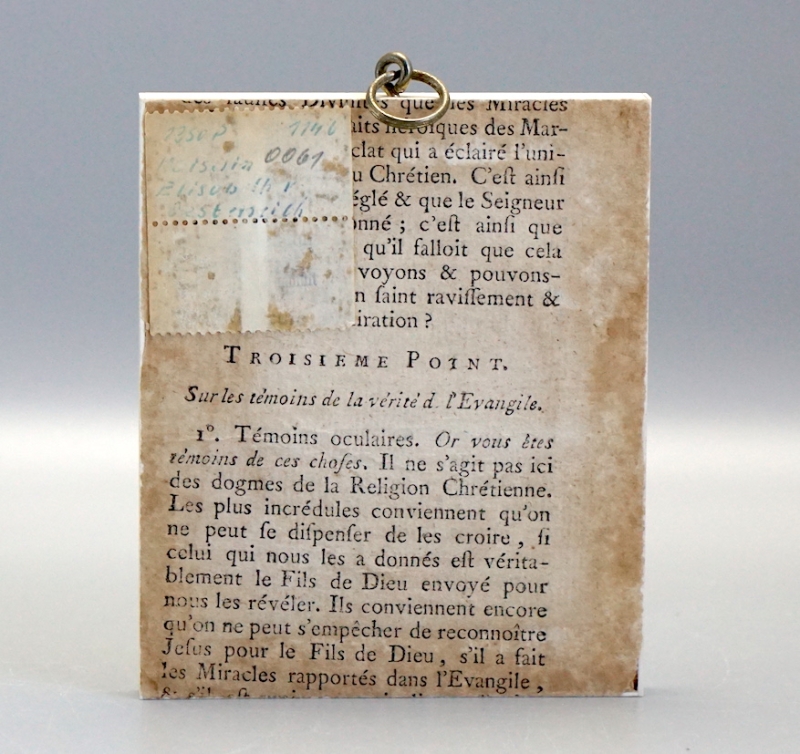 que les Miracles
1146
aits héroïques des Mar-
0061
clat qui a éclairé l'uni-
u Chrétien. C'eſt ainſi
églé & que le Seigneur
onné ; c'eſt ainſi que
qu'il falloit que cela
voyons & pouvons-
n ſaint raviſſement &
iration ?
TROISIEME POINT.
Sur les témoins de la vérité d l'Evangile.
1°. Témoins oculaires. Or vous êtes
témoins de ces choſes. Il ne s'agit pas ici
des dogmes de la Religion Chrétienne.
Les plus incrédules conviennent qu'on
ne peut ſe diſpenſer de les croire, ſi
celui qui nous les a donnés eſt vérita-
blement le Fils de Dieu envoyé pour
nous les révéler. Ils conviennent encore
qu'on ne peut s'empêcher de reconnoître
Jeſus pour le Fils de Dieu, s'il a fait
les Miracles rapportés dans l'Evangile,